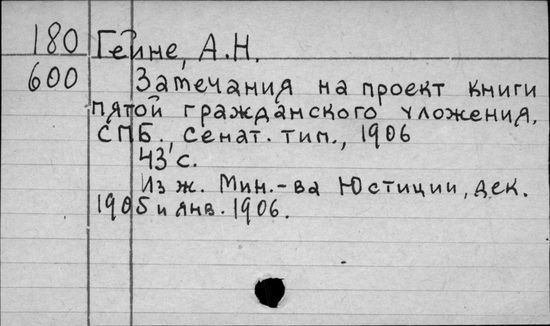 180 Гейне, А.Н.
600 Замечания на проект книги
пятой гражданского уложения.
СПБ., Сенат. тип., 1906
43 с.
Из ж. Мин.-ва Юстиции, дек.
1905 и янв. 1906.